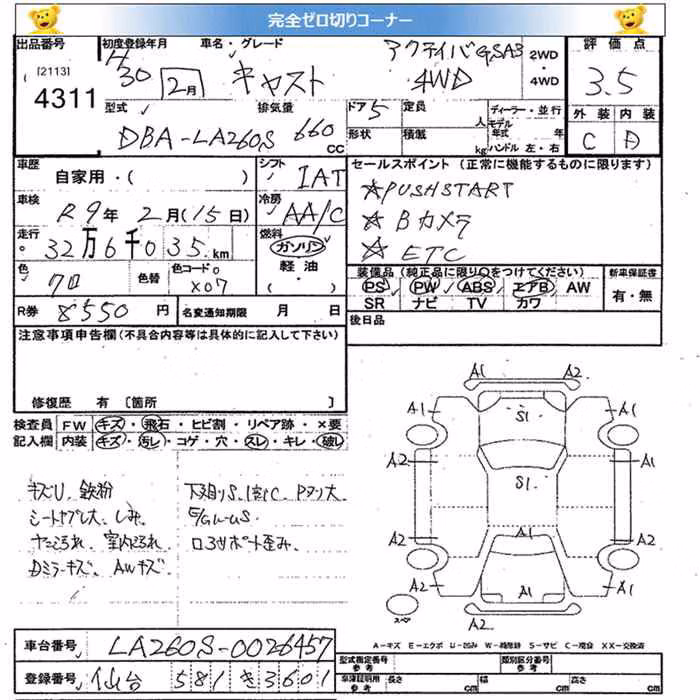 完全ゼロ切りコーナー
出品番号 初度登録年月 車名・グレード アクティバGSAⅢ 2WD・4WD 評価点
[2113] 4311 H30 2月 キャスト 4WD 3.5
型式 排気量 ドア 5 定員 人 ディーラー・並行 外装 内装
DBA-LA260S 660 CC 形状 積載 kg モデル年式 年 ハンドル 左・右 C D
車歴 自家用・( ) シフト IAT セールスポイント (正常に機能するものに限ります)
車検 R9年 2月(15日) 冷房 AA/C ☆PUSHSTART
走行 32万6千035km 燃料 ガソリン 軽油・( ) ☆Bカメラ
☆ETC
色 クロ 色替 色コードNo X07 装備品 (純正品に限り○をつけてください) 新車保証書
PS PW ABS エアB AW 有・無
SR ナビ TV カワ
R券 8550円 名変通知期限 月 日 後日品
注意事項申告欄(不具合内容等は具体的に記入して下さい)
修復歴 有 〔箇所 〕
検査員 FW キズ・飛石・ヒビ割・リペア跡・×要
記入欄 内装 キズ・汚レ・コゲ・穴・スレ・キレ・破レ
キズU、鉄粉 下廻りS
シートヤブレ大、しみ
室内よごれ ロアサポート歪み
Dミラーキズ、AWキズ
A1 A2
A1 S1 A1
A2 S1 A1
A2 A1 A2
A2 A1 A1
スペア A2
A-キズ E-エクボ U-凹み W-補修跡 S-サビ C-腐食 XX-交換済
車台番号 LA260S-0026457 型式指定番号 参考 類別区分番号 参考
登録番号 仙台 581 き 3601 車庫証明用 参考 長さ cm 幅 cm 高さ cm